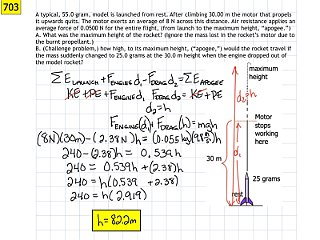 703
A typical, 55.0 gram, model is launched from rest. After climbing 30.00 m the motor that propels
it upwards quits. The motor exerts an average of 8 N across this distance. Air resistance applies an
average force of 0.0500 N for the entire flight, (from launch to the maximum height, "apogee.")
A. What was the maximum height of the rocket? (Ignore the mass lost in the rocket's motor due to
the burnt propellant.)
B. (Challenge problem,) how high, to its maximum height, ("apogee,") would the rocket travel if
the mass suddenly changed to 25.0 grams at the 30.0 m height when the engine dropped out of
the model rocket?
ΣE LAUNCH + FENGINE d₁ - FDRAG d₂ = ΣE APOGEE
KE + PE + FENGINE d₁ FDRAG d₂ = KE + PE
d₂ = h
FENGINE(d₁) FDRAG(h) = mgh
(8N)(30m) - (2.38N)h = (0.055 kg)(9.8 m/s²)h
240 - (2.38)h = 0.539h
240 = 0.539h + (2.38)h
240 = h(0.539 + 2.38)
240 = h(2.919)
h = 82.2m
maximum
height
d₂=h
Motor
stops
working
here
30 m
d₁
25 grams
rest